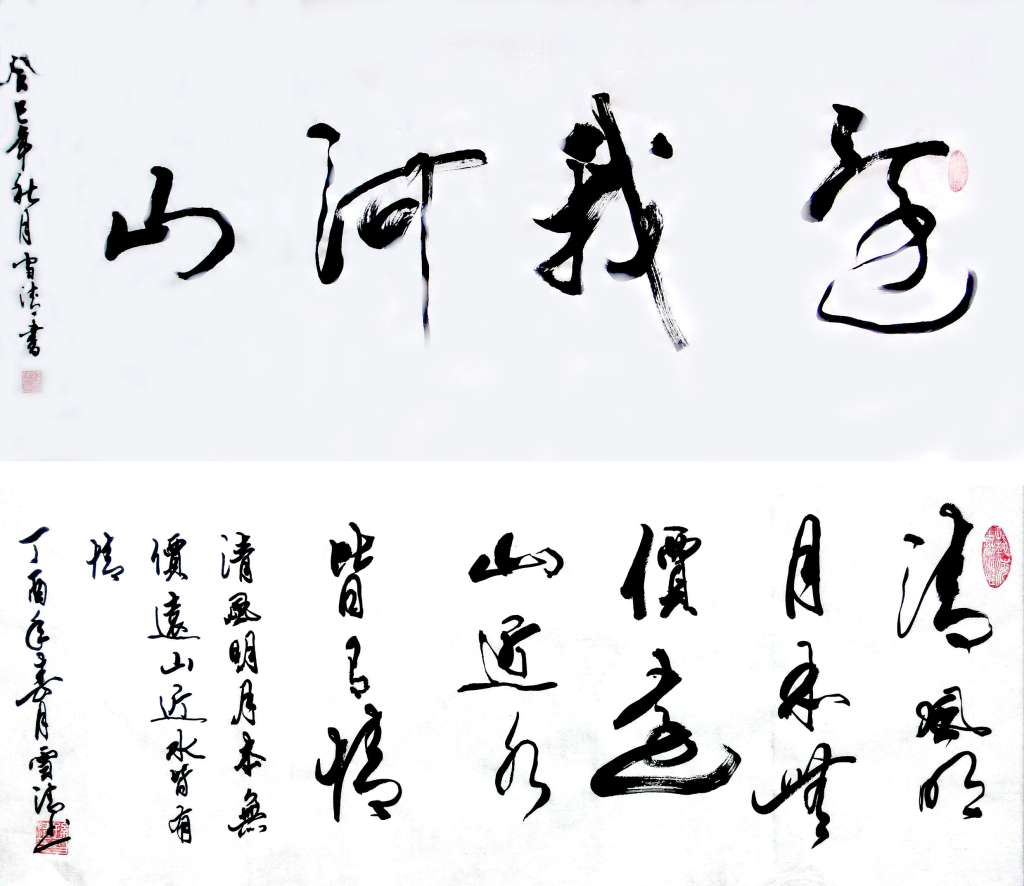 還我河山
癸巳年秋月雪清書
清風明
月本無
價遠
山近水
皆有情
清風明月本無
價遠山近水皆有
情
丁酉年春月雪清书